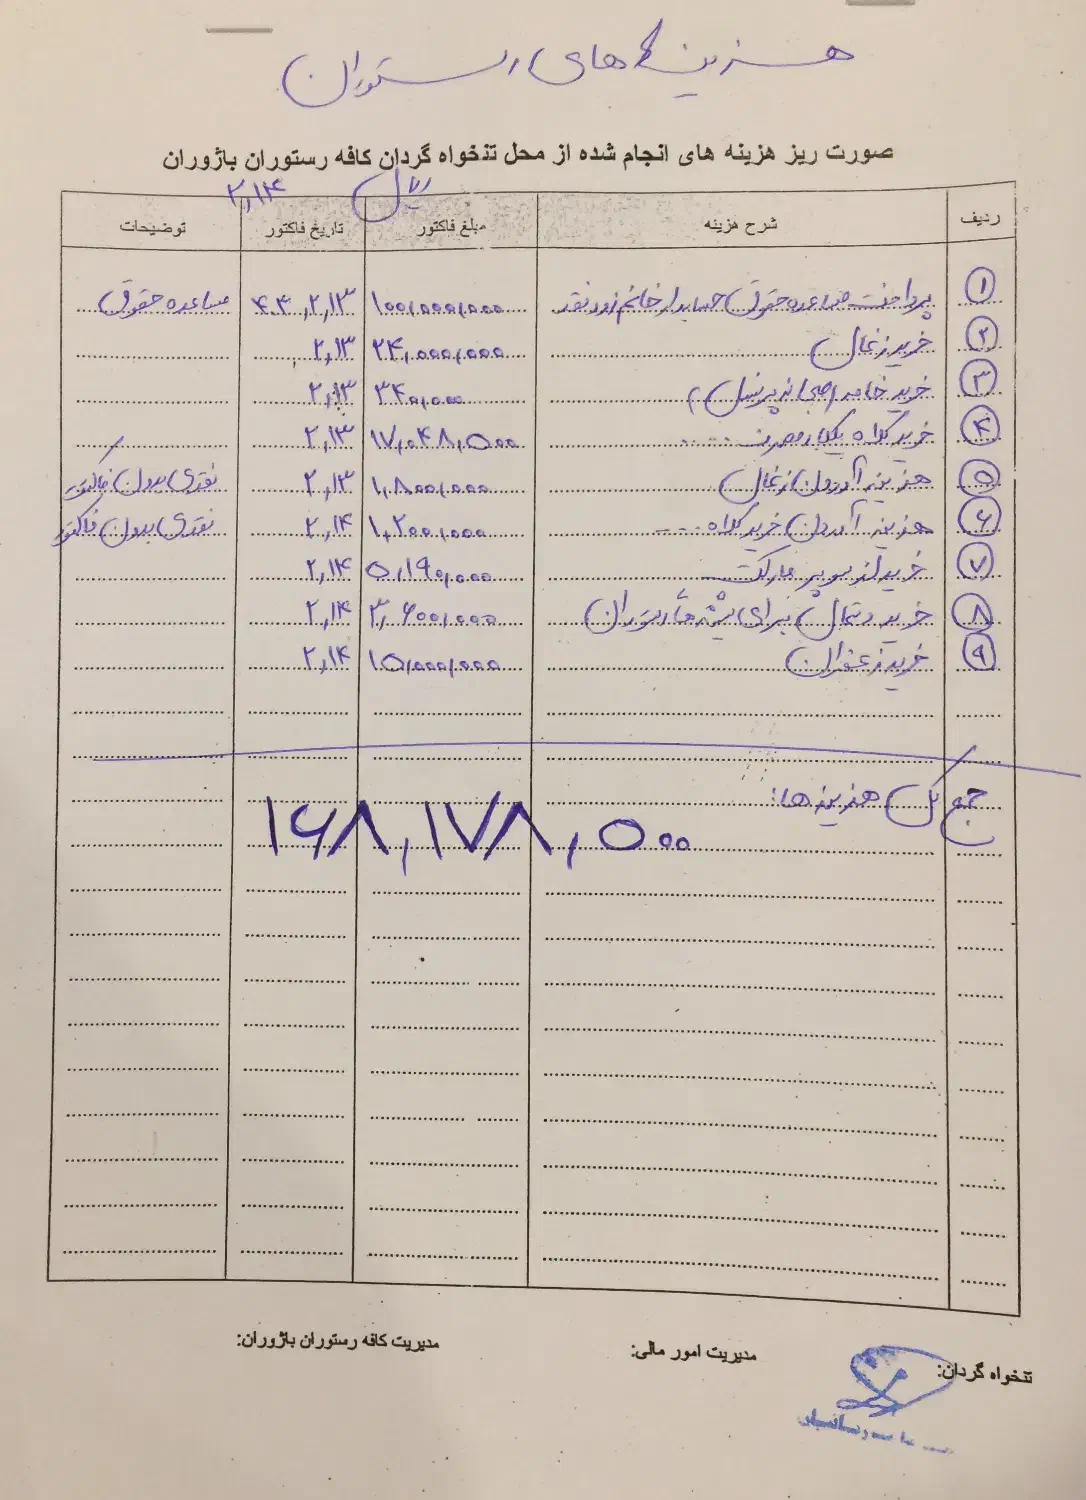 هزینه های رستوران
صورت ریز هزینه های انجام شده از محل تنخواه گردان کافه رستوران باژوران
ریال ۲,۱۴
ردیف شرح هزینه مبلغ فاکتور تاریخ فاکتور توضیحات
۱ پرداخت مساعده حقوق حسابدار خانم نقد ۱۰۰,۰۰۰,۰۰۰ ۴۰۳,۲,۱۳ مساعده حقوق
۲ خرید زغال ۲۴,۰۰۰,۰۰۰ ۲,۱۳
۳ خرید خامه صبحانه پرسنل ۳۴۰,۰۰۰ ۲,۱۳
۴ خرید کلاه یکبار مصرف .... ۱۷,۰۴۸,۵۰۰ ۲,۱۳
۵ هزینه آوردن زغال ۱,۸۰۰,۰۰۰ ۲,۱۳ نقدی بدون فاکتور
۶ هزینه آوردن خرید کلاه .... ۱,۲۰۰,۰۰۰ ۲,۱۴ نقدی بدون فاکتور
۷ خرید از سوپر مارکت ۵,۱۹۰,۰۰۰ ۲,۱۴
۸ خرید دستمال برای شیشه ها رستوران ۳,۶۰۰,۰۰۰ ۲,۱۴
۹ خرید زعفران ۱۵,۰۰۰,۰۰۰ ۲,۱۴
جمع کل هزینه ها:
۱۶۸,۱۷۸,۵۰۰
تنخواه گردان: مدیریت امور مالی: مدیریت کافه رستوران باژوران: